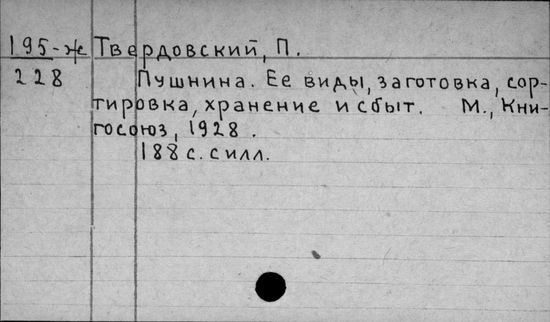 195-ж Твердовский, П.
228 Пушнина. Ее виды, заготовка, сор-
тировка, хранение и сбыт. М., Кни-
госоюз, 1928.
188 с. с илл.